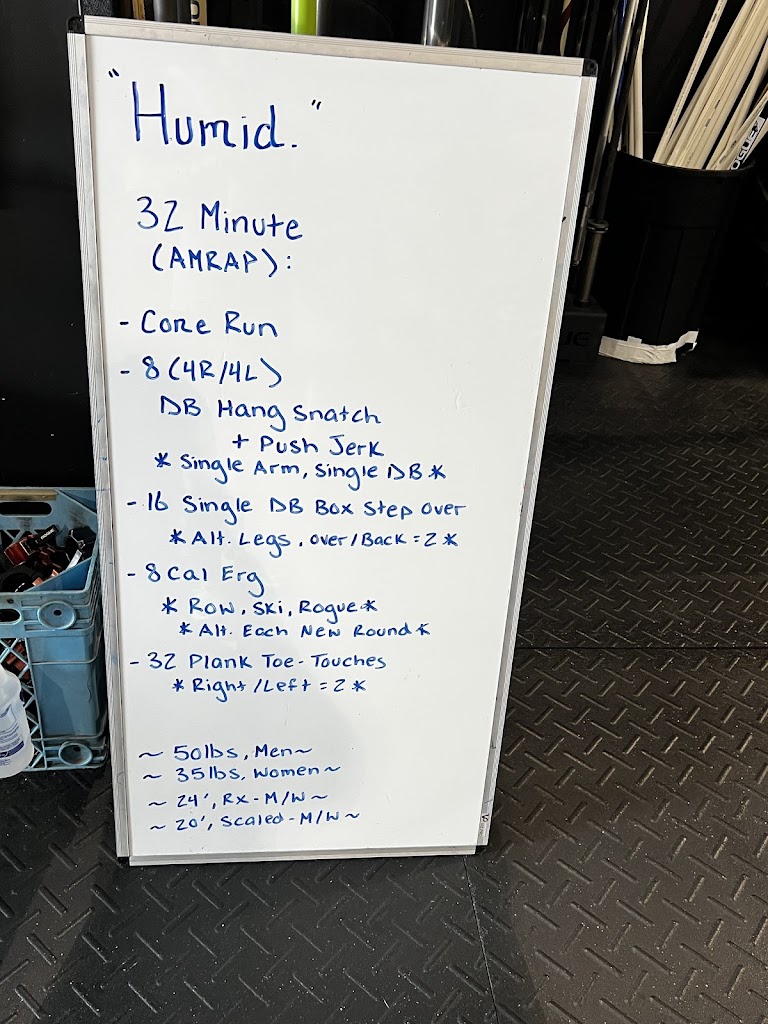 "Humid."
32 Minute
(AMRAP):
- Core Run
- 8 (4R/4L)
DB Hang Snatch
+ Push Jerk
* Single Arm, Single DB *
- 16 Single DB Box Step Over
* Alt. Legs, Over/Back = 2 *
- 8 Cal Erg
* Row, Ski, Rogue *
* Alt. Each New Round *
- 32 Plank Toe-Touches
* Right/Left = 2 *
~ 50lbs, Men ~
~ 35lbs, Women ~
~ 24', Rx - M/W ~
~ 20', Scaled - M/W ~
ROGUE